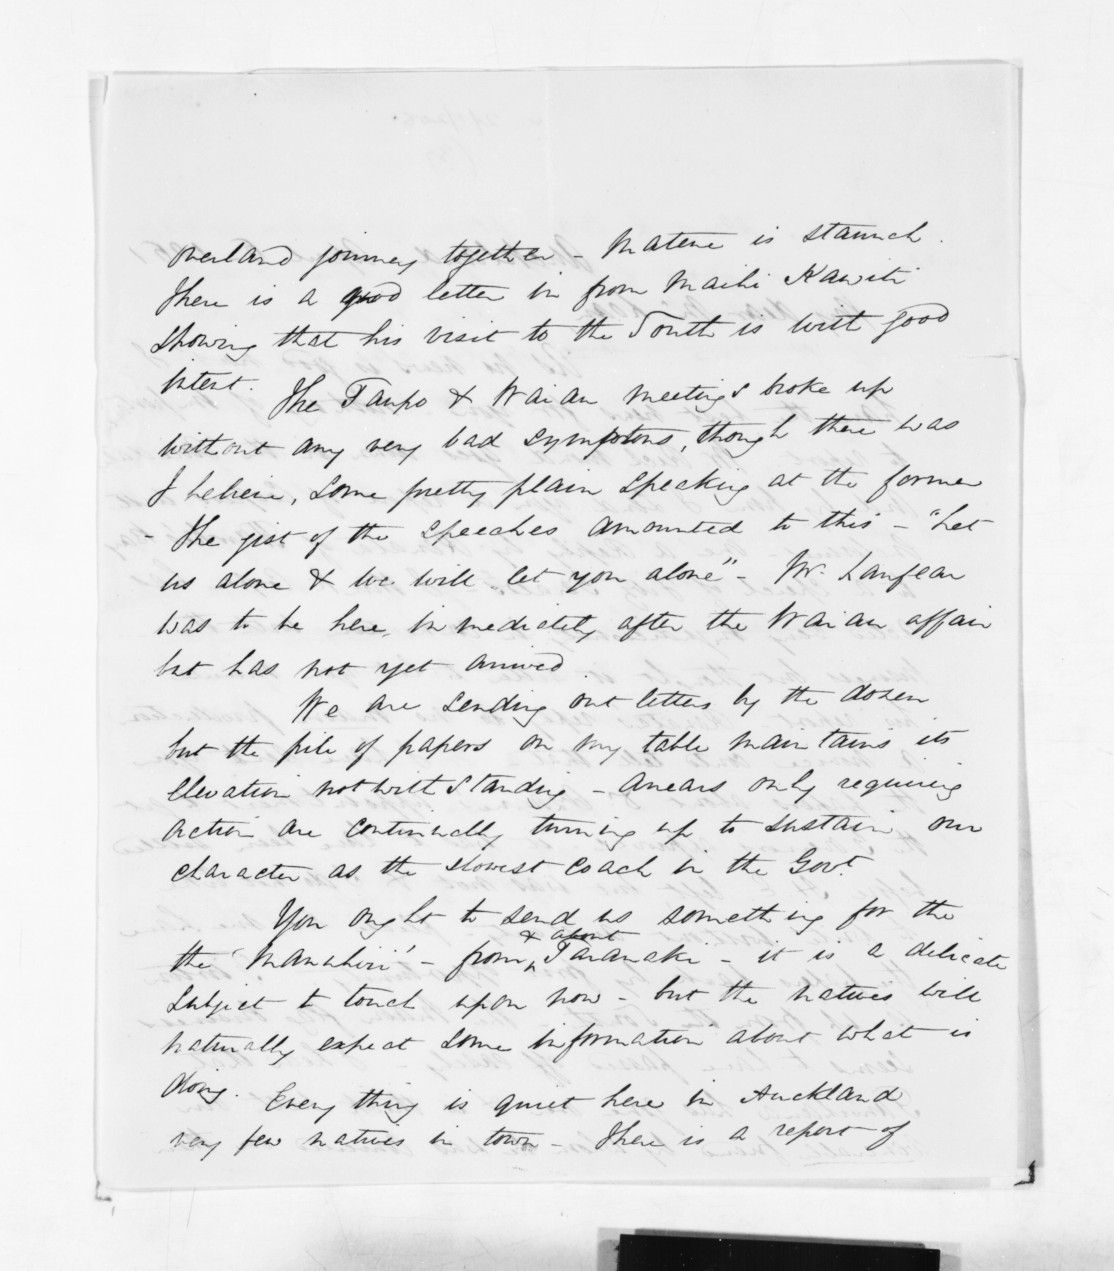 overland journey together - Matene is staunch.
There is a good letter in from Maihi Kawiti
showing that his visit to the South is with good
intent.
The Taupo & Waiau meetings broke up
without any very bad symptoms, though there was
I believe, some pretty plain specking at the former
- The gist of the speeches amounted to this - "Let
us alone & we will let you alone" - Mr. Lanfear
was to be here immediately after the Waiau affair
but has not yet arrived
We are sending out letters by the dozen
but the pile of papers on my table maintains its
elevation notwithstanding - arrears only requiring
action are continually turning up to sustain our
character as the slowest coach in the Govt.
You ought to send us something for the
& about
the 'Manuhiri' - from Taranaki - it is a delicate
subject to touch upon now - but the natives will
naturally expect some information about what is
doing.
Every thing is quiet here in Auckland
very few natives in town - There is a report of